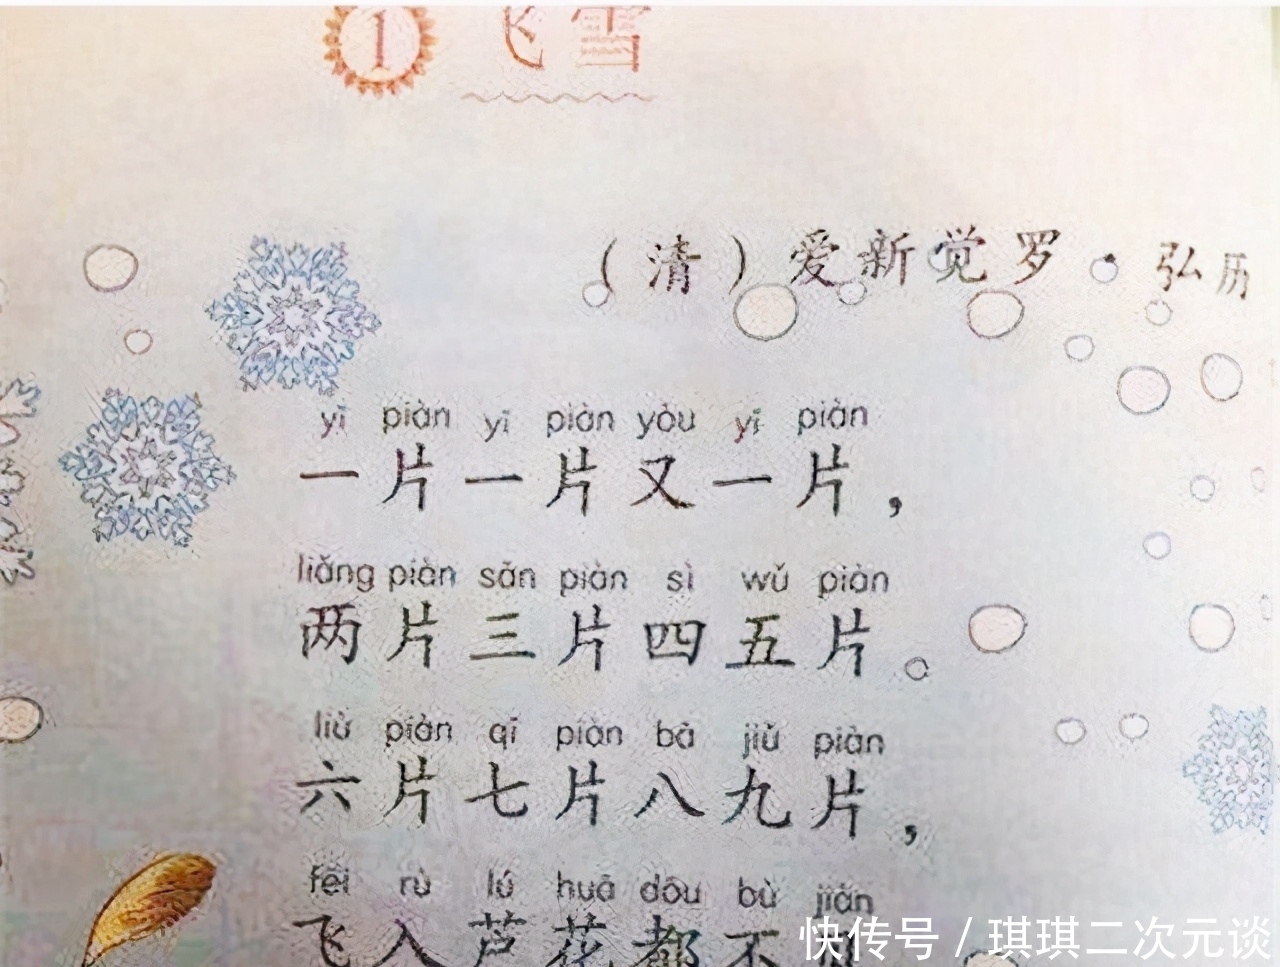 1 飞雪
(清)爱新觉罗·弘历
yī piàn yī piàn yòu yī piàn
一片一片又一片，
liǎng piàn sān piàn sì wǔ piàn
两片三片四五片。
liù piàn qī piàn bā jiǔ piàn
六片七片八九片，
fēi rù lú huā dōu bù jiàn
飞入芦花都不见
快传号/琪琪二次元谈